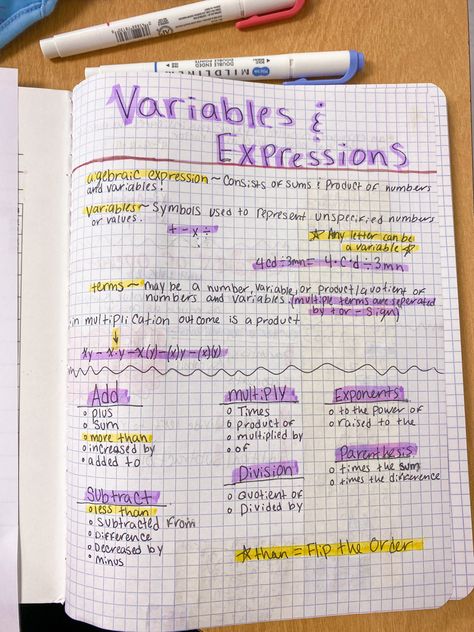 MILDLINER
DOUBLE ENDED
Variables &
Expressions
algebraic expression ~ Consists of sums & Product of numbers
and variables!
Variables ~ Symbols used to represent unspecified numbers
or values.
+ - x ÷
☆ Any letter can be
a variable ☆
4cd ÷ 3mn = 4 · C · d ÷ 3mn
terms ~ may be a number, variable, or product/quotient of
numbers and variables. (multiple terms are seperated
by + or - sign)
in multiplication outcome is a product
xy - x · y - x(y) - (x)y - (x)(y)
Add
plus
sum
more than
increased by
added to
multiply
Times
product of
multiplied by
of
Exponents
to the power of
raised to the
Parenthesis
times the sum
times the difference
Division
Quotient of
Divided by
Subtract
less than
Subtracted from
Difference
Decreased by
minus
☆ than = Flip the Order